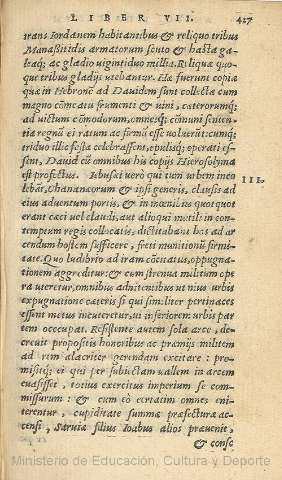 LIBER VII. 427
trans Iordanem habitantibus & reliquo tribus
Manasitidis armatorum scuto & hasta ga-
leaq; ac gladio uigintiduo millia. Reliquæ quo-
que tribus gladijs utebantur. Hæ fuerunt copiæ
quæ in Hebronē ad Dauidem sunt collectæ cum
magno cōmeatu frumenti & uini, cæterorumq;
ad uictum cōmodorum, omnesq; cōmuni senten-
tia regnū ei ratum ac firmū esse uoluerūt: cumq;
triduo illic festa celebrassent, epulisq; operati es-
sent, Dauid cū omnibus his copijs Hierosolyma
est profectus. Iebusæi uerò qui tum urbem inco
lebāt, Chananæorum & ipsi generis, clausis ad
III.
eius aduentum portis, & in mœnibus quotquot
erant cæci uel claudi, aut alioqui mutili in con-
temptum regis collocatis, dictitabant hos ad ar
cendum hostem sufficere, freti munitionū firmi-
tate. Quo ludibrio ad iram cōcitatus, oppugna-
tionem aggreditur: & cum strenua militum ope
ra uteretur, omnibus adnitentibus ut unius urbis
expugnatione cæteris si qui similiter pertinaces
essent metus incuteretur, ui inferiorem urbis par
tem occupat. Resistente autem sola arce, de-
creuit propositis honoribus ac præmijs militem
ad rem alacriter gerendam excitare: pro-
misitq; ei qui per subiectam uallem in arcem
euasisset, totius exercitus imperium se com-
missurum: & cum eò certatim omnes eni-
terentur, cupiditate summæ præfecturæ ac-
censi, Saruiæ filius Ioabus alios præuenit,
& consc
Ministerio de Educación, Cultura y Deporte